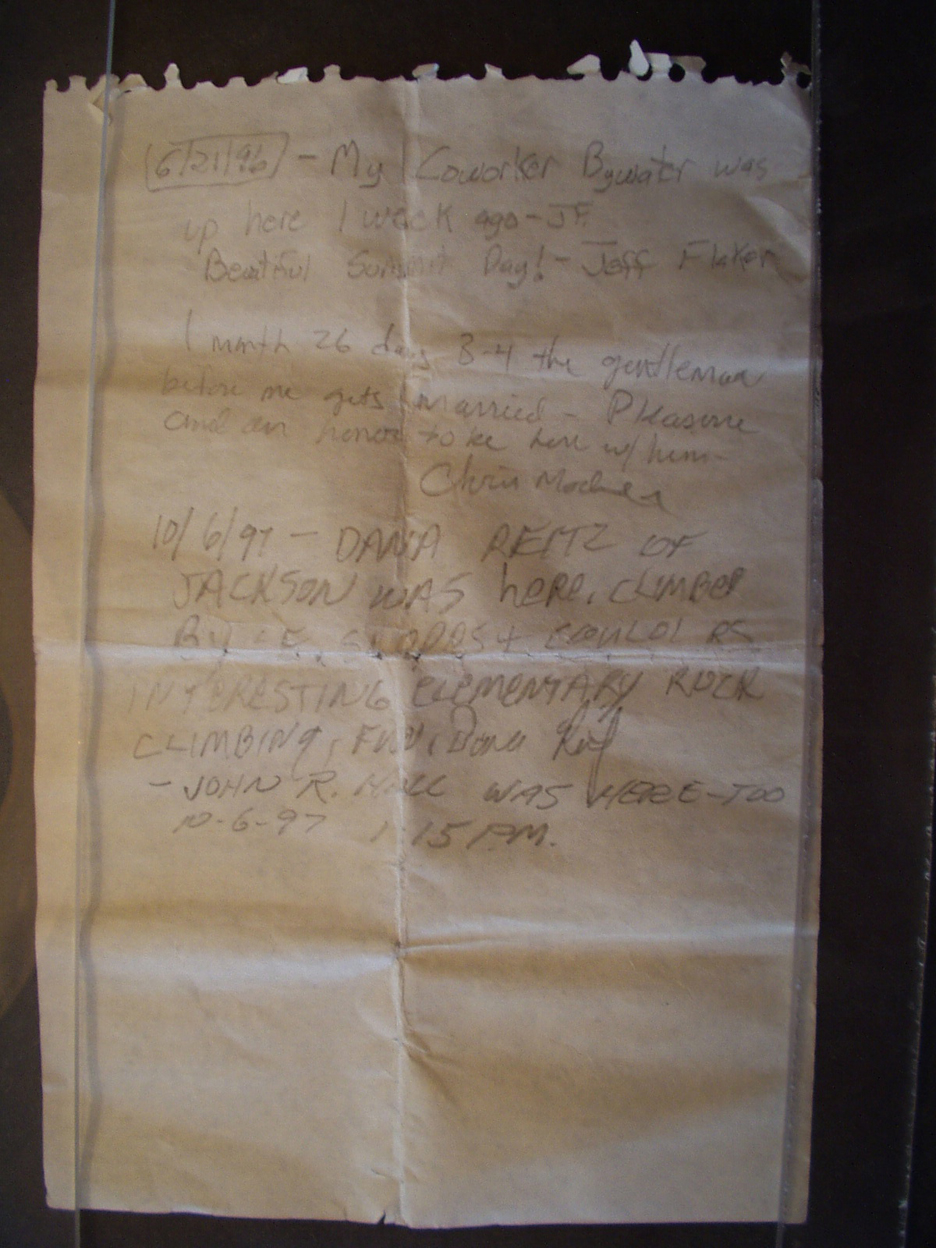 6/21/96 - My Coworker Bywater was
up here 1 week ago - JF.
Beautiful Summit Day! - Jeff Flaker
1 month 26 days B-4 the gentleman
before me gets married - Pleasure
and an honor to be here w/ him -
Chris
10/6/97 - DANA REITZ OF
JACKSON WAS here. CLIMBED
BY
INTERESTING ELEMENTARY ROCK
CLIMBING, FUN, Dana
- JOHN R. WAS HERE - TOO
10-6-97 1:15 P.M.